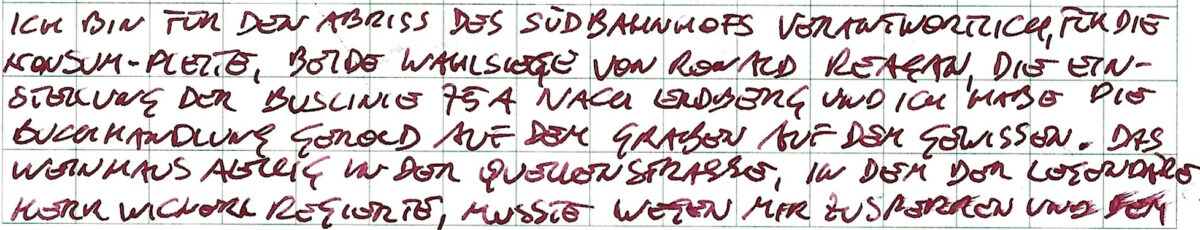 ICH BIN FÜR DEN ABRISS DES SÜDBAHNHOFS VERANTWORTLICH, FÜR DIE
KONSUM-PLEITE, BEIDE WAHLSIEGE VON RONALD REAGAN, DIE EIN-
STELLUNG DER BUSLINIE 75A NACH ERDBERG UND ICH HABE DIE
BUCHHANDLUNG GEROLD AUF DEM GRABEN AUF DEM GEWISSEN. DAS
WEINHAUS IN DER QUELLENSTRASSE, IN DEM DER LEGENDÄRE
HERR REGIERTE, MUSSTE WEGEN MIR ZUSPERREN UND